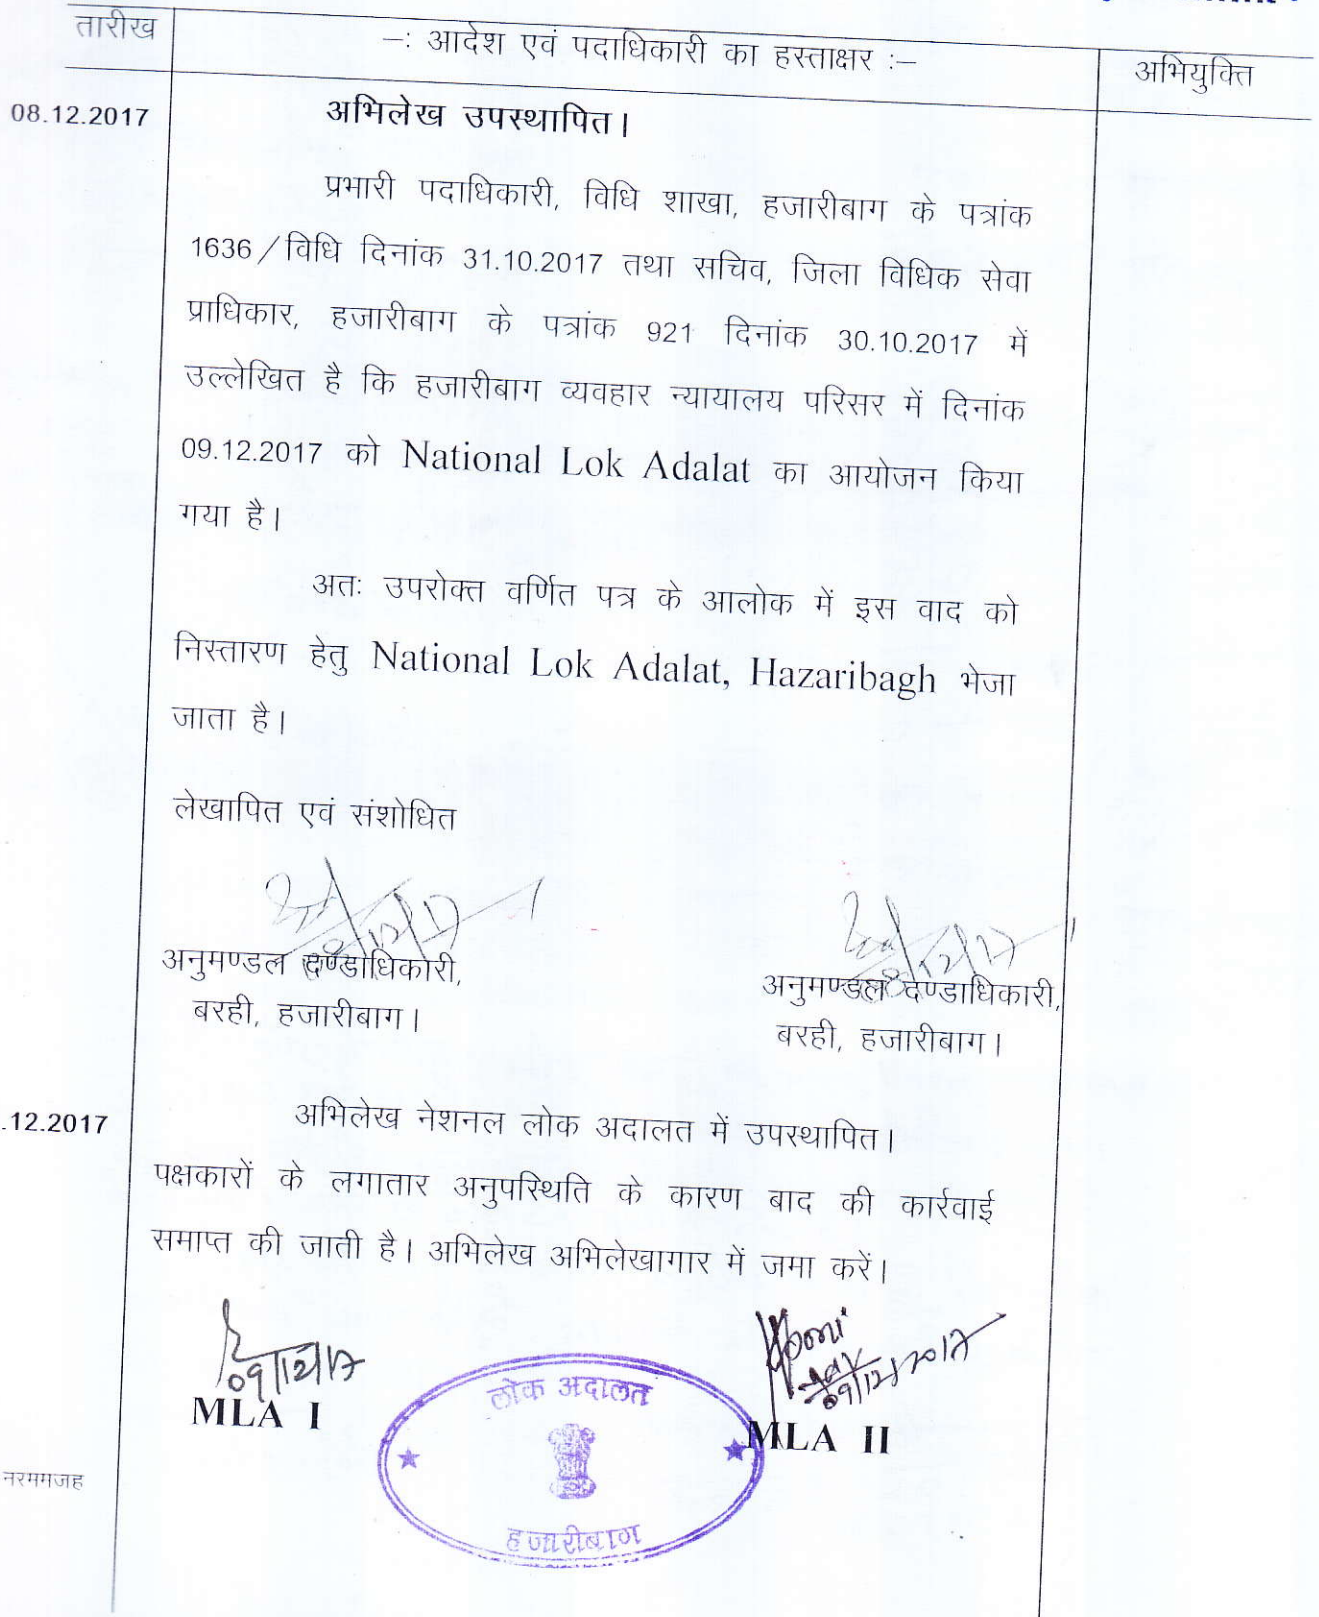 तारीख
–: आदेश एवं पदाधिकारी का हस्ताक्षर :–
अभियुक्ति
08.12.2017
अभिलेख उपस्थापित।
प्रभारी पदाधिकारी, विधि शाखा, हजारीबाग के पत्रांक
1636/विधि दिनांक 31.10.2017 तथा सचिव, जिला विधिक सेवा
प्राधिकार, हजारीबाग के पत्रांक 921 दिनांक 30.10.2017 में
उल्लेखित है कि हजारीबाग व्यवहार न्यायालय परिसर में दिनांक
09.12.2017 को National Lok Adalat का आयोजन किया
गया है।
अतः उपरोक्त वर्णित पत्र के आलोक में इस वाद को
निस्तारण हेतु National Lok Adalat, Hazaribagh भेजा
जाता है।
लेखापित एवं संशोधित
अनुमण्डल दण्डाधिकारी,
बरही, हजारीबाग।
अनुमण्डल दण्डाधिकारी,
बरही, हजारीबाग।
.12.2017
अभिलेख नेशनल लोक अदालत में उपस्थापित।
पक्षकारों के लगातार अनुपस्थिति के कारण बाद की कार्रवाई
समाप्त की जाती है। अभिलेख अभिलेखागार में जमा करें।
09/12/17
09/12/2017
MLA I
MLA II
लोक अदालत
हजारीबाग
नरममजह